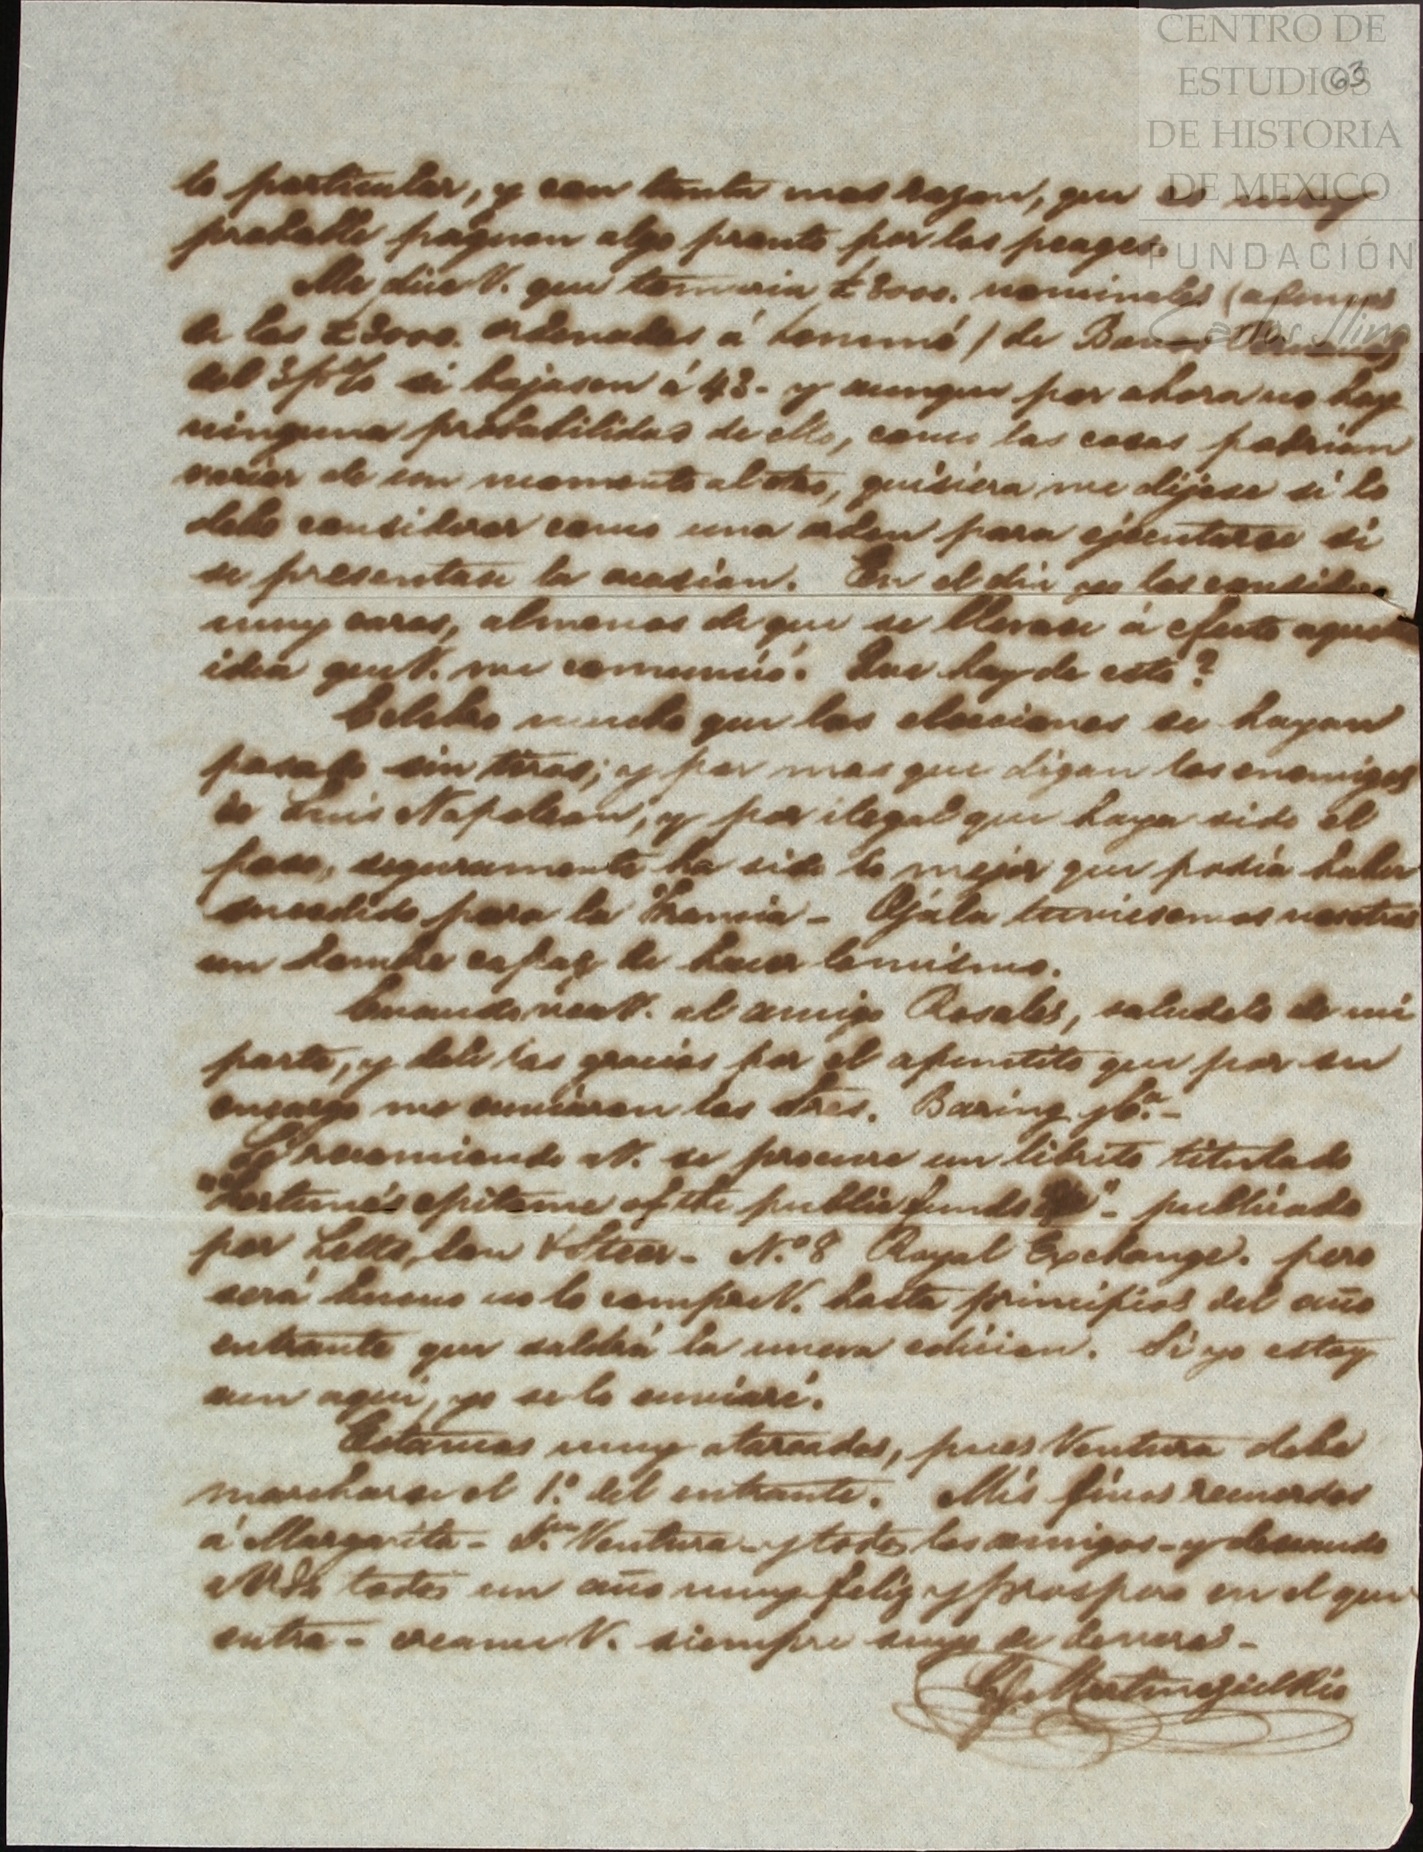 CENTRO DE
ESTUDIOS
DE HISTORIA
DE MEXICO
FUNDACIÓN
Carlos Slim
63
lo particular, y con tanta mas razon, que es muy
probable paguen algo pronto por los peages.
Me dice V. que tomaria £3000. nominales (ademas
de las £3000. ordenadas á) de Bonos
del 3p% si bajasen á 43- y aunque por ahora no hay
ninguna probabilidad de ello, como las cosas podrian
variar de un momento al otro, quisiera me dijese si lo
debo considerar como una orden para ejecutarse si
se presentase la ocasion. En el dia yo los considero
muy caros, almenos de que se llevase á efecto aquella
idea que V. me comunicó. Que hay de esto?
Celebro mucho que las elecciones se hayan
pasado sin tiros; y por mas que digan los enemigos
de Luis Napoleon, y por ilegal que haya sido el
paso, seguramente ha sido lo mejor que podia haber
sucedido para la Francia - Ojala tuviesemos nosotros
un hombre capaz de hacer lo mismo.
Cuando vea V. al amigo Rosales, saludelo de mi
parte, y dele las gracias por el apuntito que por su
encargo me enviaron los Sres. Baring y Ca. -
Le recomiendo a V. se procure un librito titulado
"Fortune's epitome of the public funds" - publicado
por Letts, Son & Steer - No. 8 Royal Exchange. pero
será bueno no lo compre V. hasta principios del año
entrante que saldrá la nueva edicion. Si yo estoy
aun aqui, yo se lo enviaré.
Estamos muy atareados, pues Ventura debe
marcharse el 1.º del entrante. Mis finos recuerdos
á Margarita - Dn. Ventura - y todos los amigos - y deseando
a Vds todos un año muy feliz y prospero en el que
entra - creame V. siempre suyo de deveras -
G. Martinez del Rio